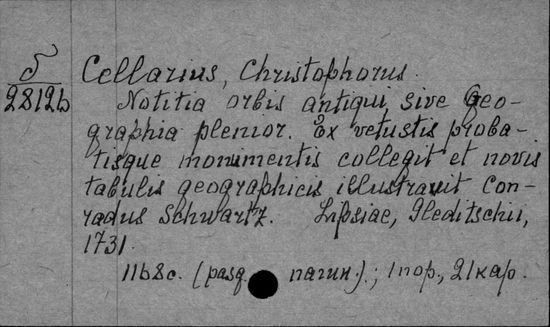 δ
28126
Cellarius, Christophorus.
Notitia orbis antiqui, sive Geo-
graphia plenior. Ex vetustis proba-
tisque monumentis collegit et novis
tabulis geographicis illustravit Con-
radus Schwartz. Lipsiae, Gleditschii,
1731.
1168с. (разд. пагин.); 1 пор., 21 кар.